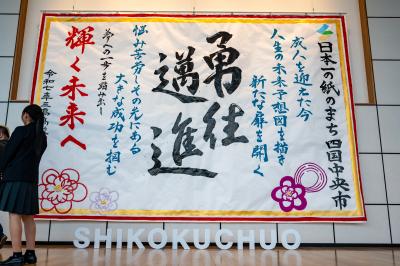 日本一の紙のまち四国中央市
成人を迎えた今
人生の未来予想図を描き
新たな扉を開く
勇往
邁進
悩み苦労しその先にある
大きな成功を掴む
夢への一歩を踏み出し
輝く未来へ
令和七年
SHIKOKUCHUO